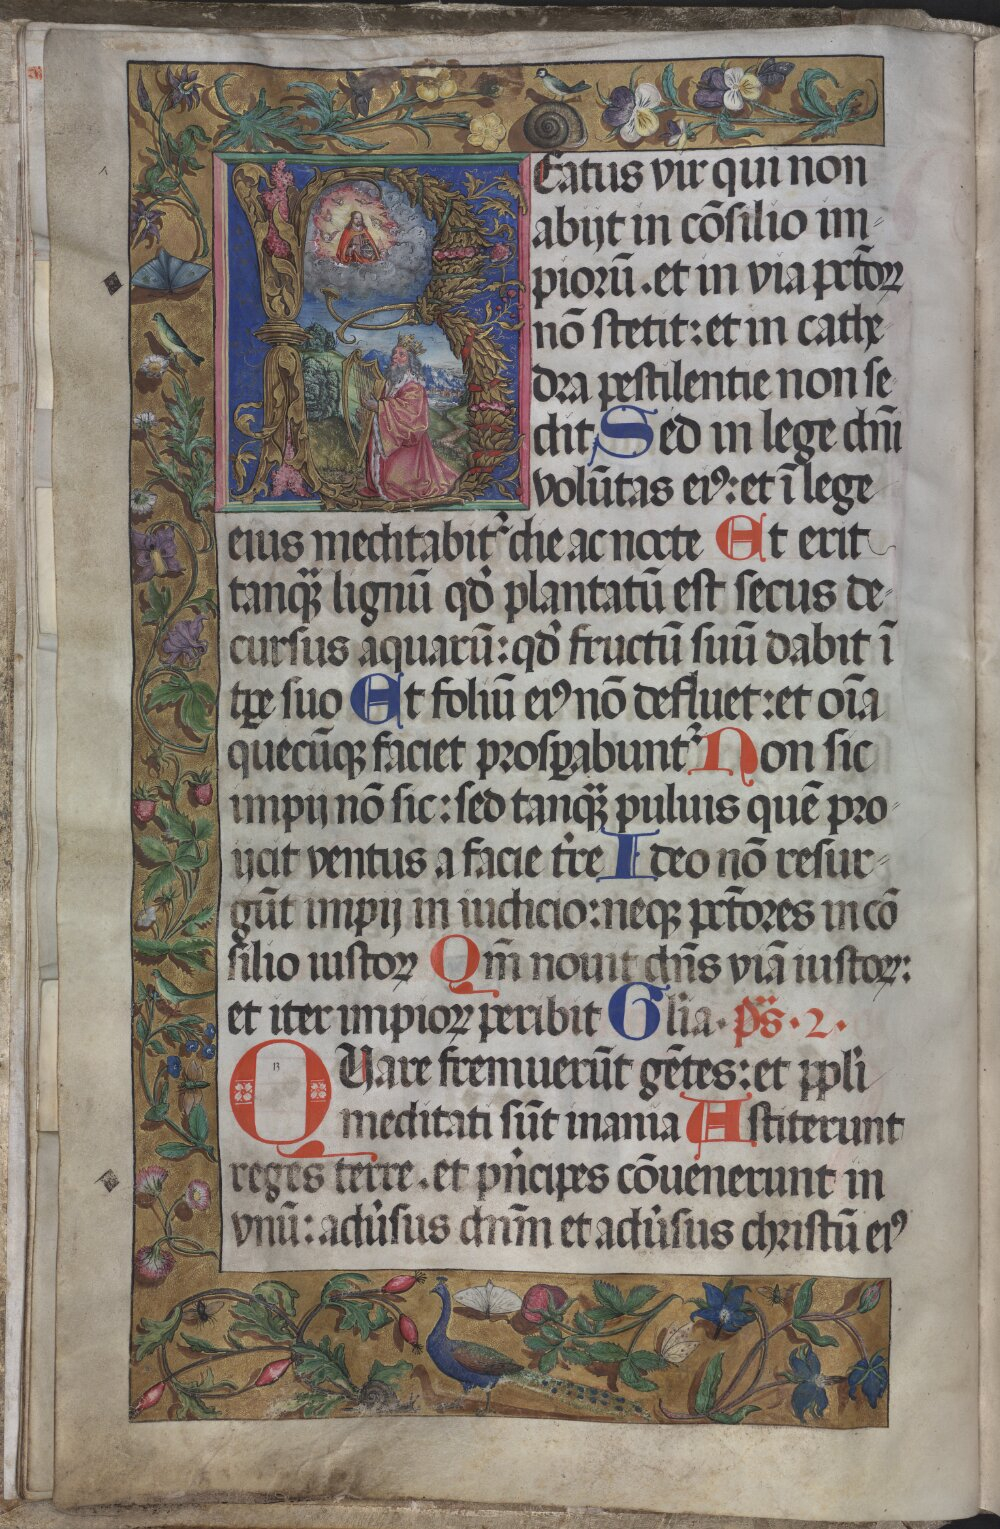 BEatus vir qui non
abijt in cōsilio im-
piorū. et in via pctōꝝ
nō stetit: et in cathe
dra pestilentie non se
dit Sed in lege dn̄i
volūtas eiꝰ: et ī lege
eius meditabit᷑ die ac nocte Et erit
tanqȝ lignū qd̓ plantatū est secus de-
cursus aquarū: qd̓ fructū suū dabit ī
tꝑe suo Et foliū eiꝰ nō defluet: et oīa
quecūqȝ faciet prosꝑabunt᷑ Non sic
impij nō sic: sed tanqȝ puluis quē pro-
ijcit ventus a facie t̓re Ideo nō resur-
gūt impij in iudicio: neqȝ pctōres in cō
silio iustoꝝ Qm̄ nouit dn̄s viā iustoꝝ:
et iter impioꝝ peribit Gl̓ia. ps̄. 2.
QUare fremuerūt gētes: et ppl̓i
meditati sūt inania Astiterunt
reges terre. et pn̓cipes cōuenerunt in
vnū: adu̓sus dn̄m et adu̓sus christū eiꝰ